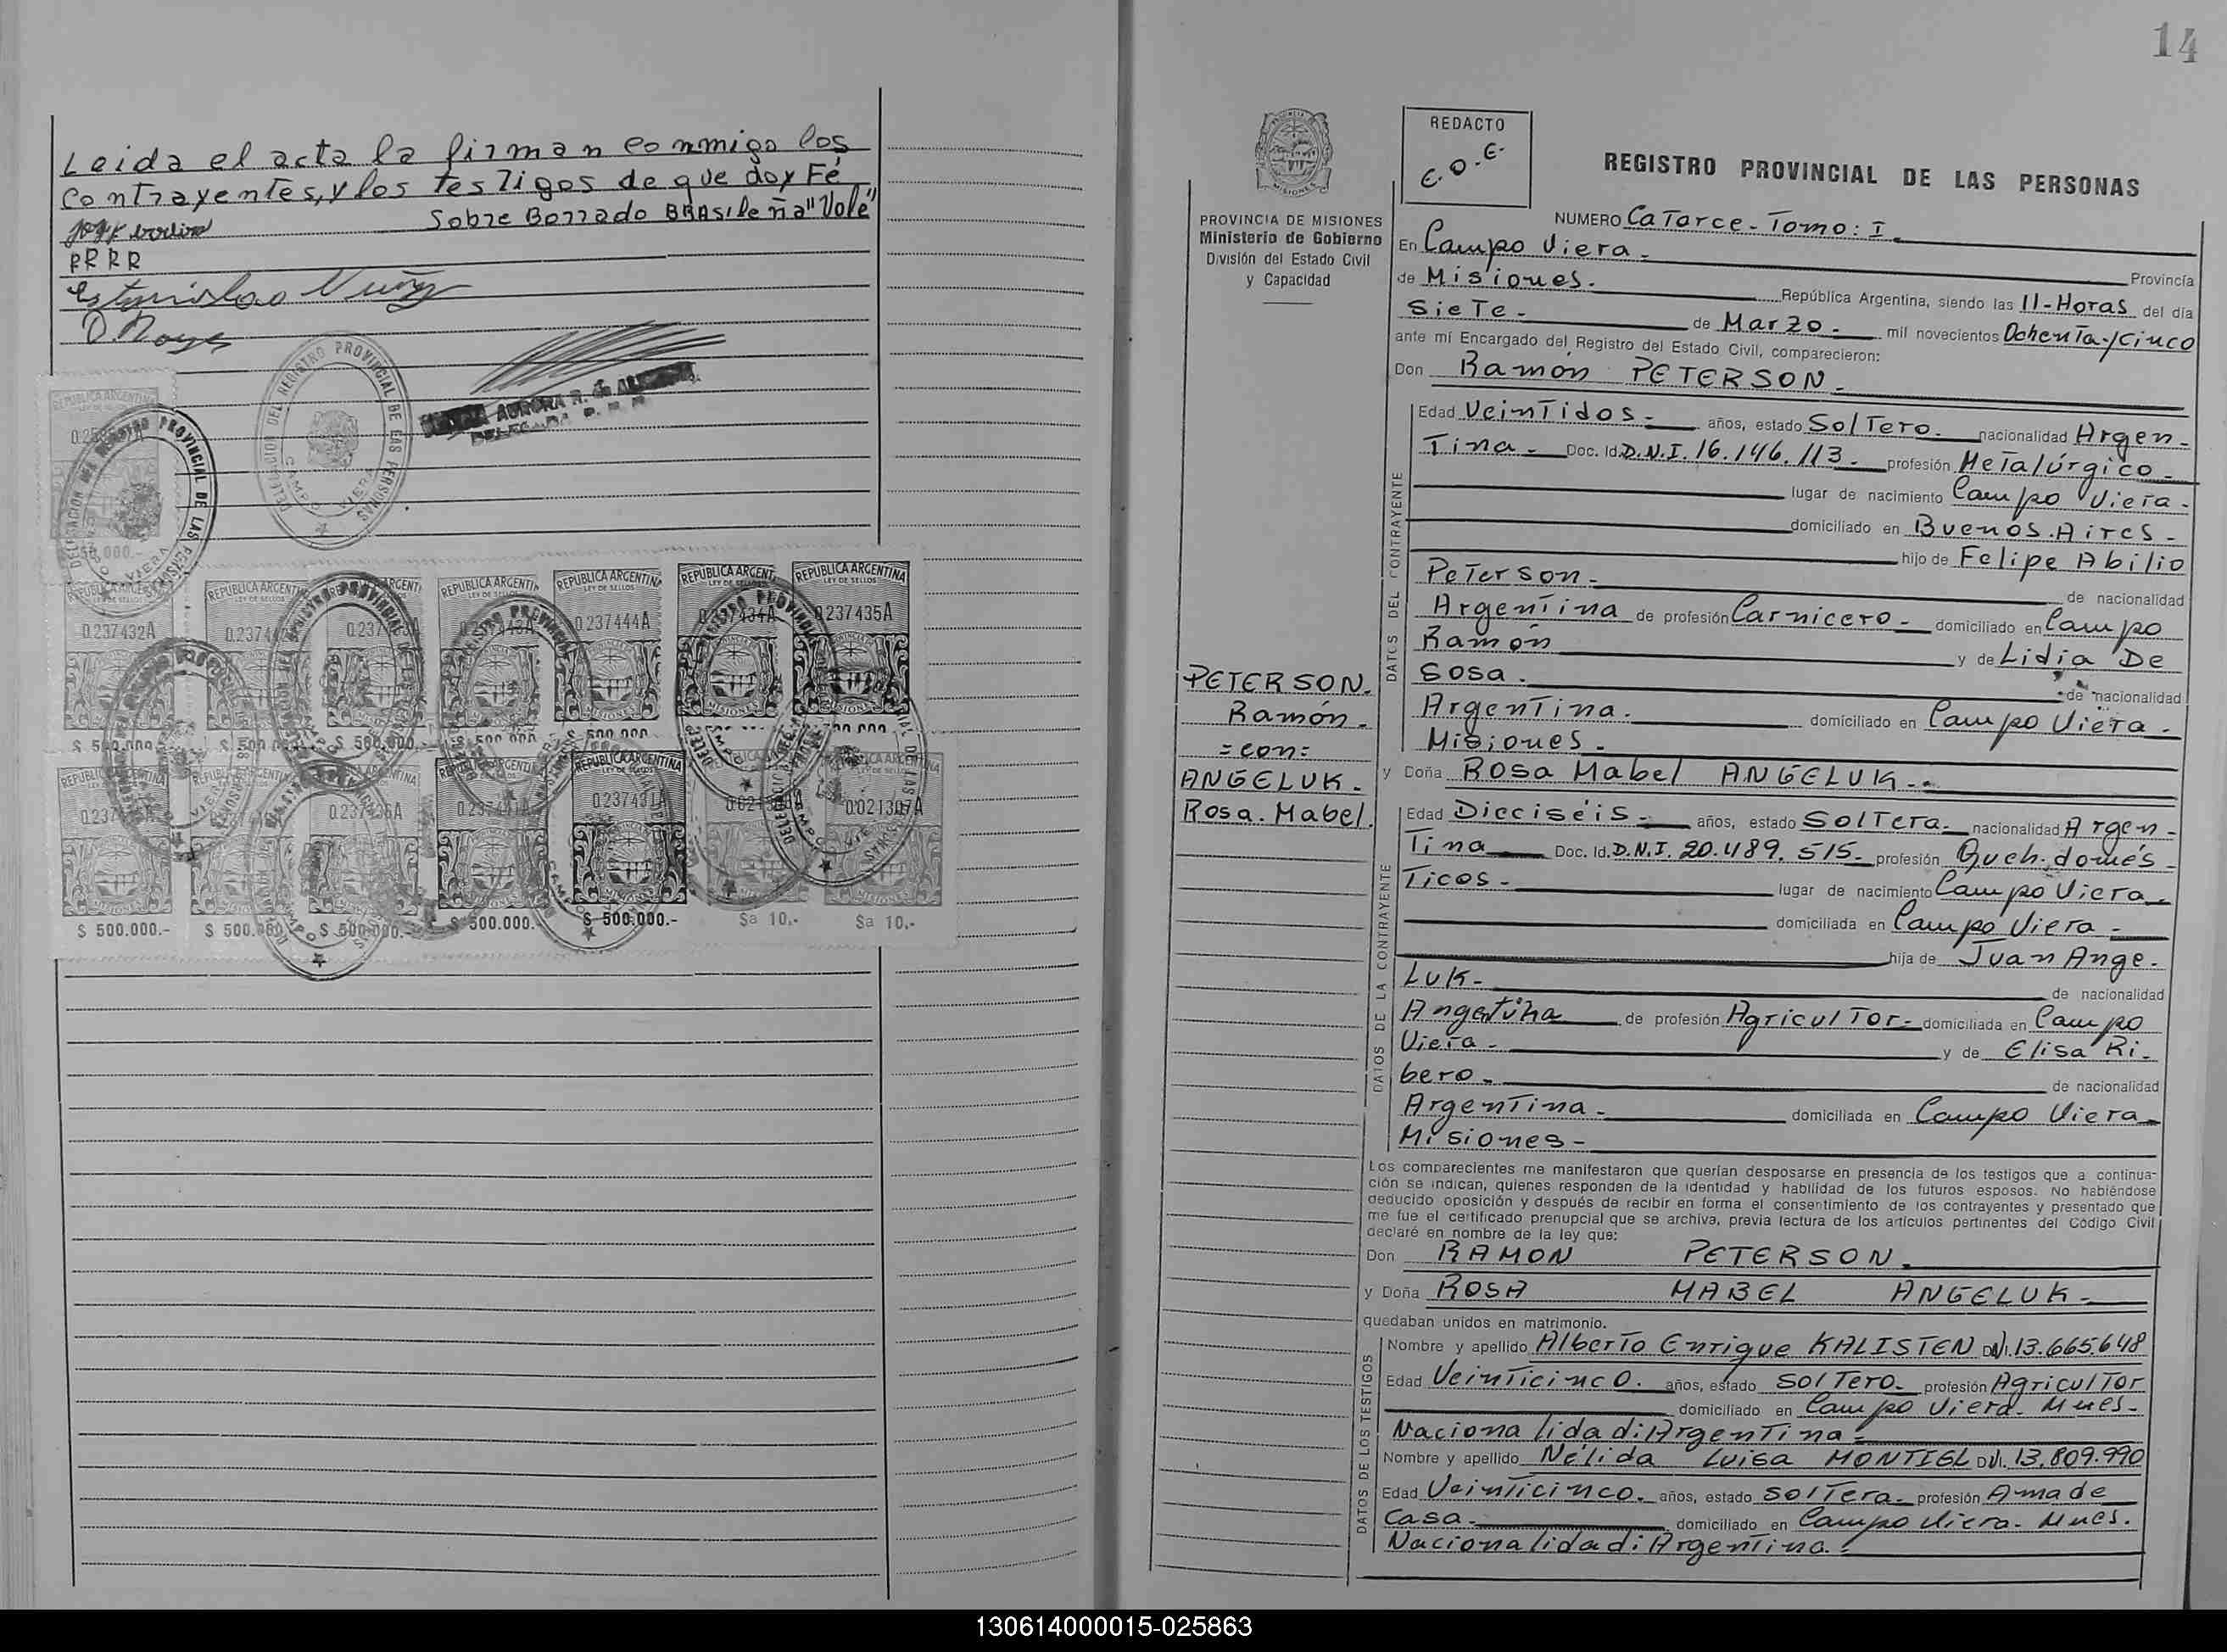 Leida el acta la firman conmigo los
contrayentes, y los testigos de que doy Fé
Sobre Borrado BRASileña "Vale"
RRRR
Estanislao Nuñez
DELEGACION DEL REGISTRO PROVINCIAL DE LAS PERSONAS
CAMPO VIERA
AURORA R. de
REPUBLICA ARGENTINA
LEY DE SELLOS
0.237432A
0.237444A
0.237434A
0.237435A
MISIONES
$ 500.000.-
0.237436A
0.237431A
0.021307A
$ 500.000.-
$ 500.000.-
$a 10,-
$a 10,-
14
REDACTO
E.O.E.
REGISTRO PROVINCIAL DE LAS PERSONAS
PROVINCIA DE MISIONES
Ministerio de Gobierno
División del Estado Civil
y Capacidad
NUMERO CaTorce - Tomo: I
En Campo Viera - Provincia
de Misiones. República Argentina, siendo las 11-Horas del día
SieTe - de Marzo - mil novecientos OchenTa y Cinco
ante mí Encargado del Registro del Estado Civil, comparecieron:
Don Ramón PETERSON.
DATOS DEL CONTRAYENTE
Edad VeinTidos - años, estado SolTero - nacionalidad Argen-
Tina - Doc. Id. D.N.I. 16.146.113 - profesión MeTalúrgico -
lugar de nacimiento Campo Viera -
domiciliado en Buenos Aires -
hijo de Felipe Abilio
PeTerson - de nacionalidad
ArgenTina de profesión Carnicero - domiciliado en Campo
Ramón y de Lidia De
Sosa. de nacionalidad
ArgenTina. domiciliado en Campo Viera -
Misiones -
PETERSON.
Ramón -
= con =
ANGELUK -
Rosa. Mabel.
y Doña Rosa Mabel ANGELUK -
DATOS DE LA CONTRAYENTE
Edad Dieciséis - años, estado SolTera - nacionalidad Argen-
Tina Doc. Id. D.N.I. 20.489.515 - profesión Queh. domés-
Ticos - lugar de nacimiento Campo Viera -
domiciliada en Campo Viera -
hija de Juan Ange-
Luk - de nacionalidad
Argentina de profesión AgriculTor - domiciliada en Campo
Viera - y de Elisa Ri-
bero - de nacionalidad
ArgenTina - domiciliada en Campo Viera
Misiones -
Los comparecientes me manifestaron que querían desposarse en presencia de los testigos que a continua-
ción se indican, quienes responden de la identidad y habilidad de los futuros esposos. No habiéndose
deducido oposición y después de recibir en forma el consentimiento de los contrayentes y presentado que
me fue el certificado prenupcial que se archiva, previa lectura de los artículos pertinentes del Código Civil
declaré en nombre de la ley que:
Don RAMON PETERSON.
y Doña ROSA MABEL ANGELUK -
quedaban unidos en matrimonio.
DATOS DE LOS TESTIGOS
Nombre y apellido AlberTo Enrique KALISTEN DNI. 13.665.648
Edad VeinTicinco. años, estado SolTero - profesión AgriculTor
domiciliado en Campo Viera. Mnes -
Nacionalidad: ArgenTina -
Nombre y apellido Nélida Luisa MONTIEL DNI. 13.809.990
Edad VeinTicinco. años, estado SolTera - profesión Ama de
Casa - domiciliado en Campo Viera. Mnes.
Nacionalidad: ArgenTina.
130614000015-025863